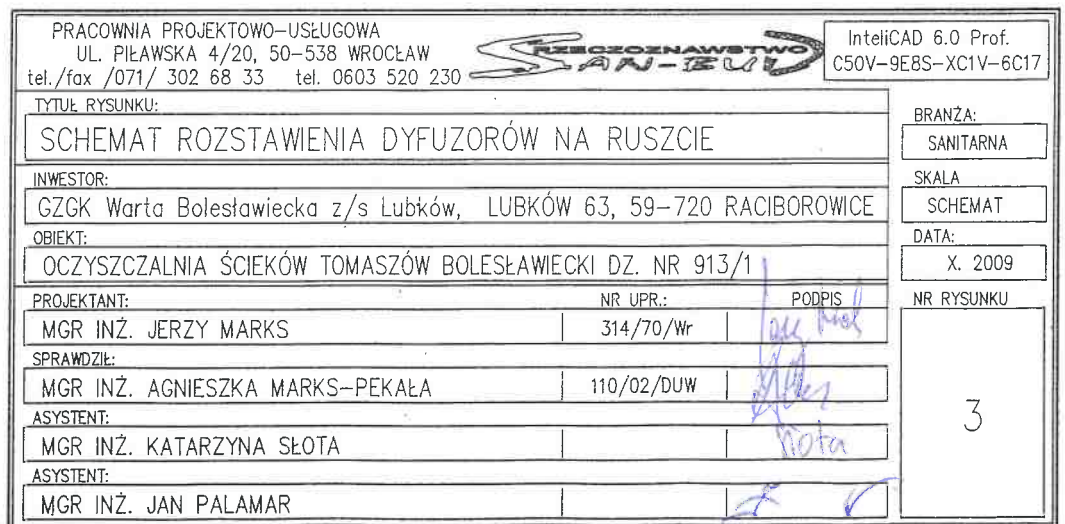 PRACOWNIA PROJEKTOWO-USŁUGOWA
UL. PIŁAWSKA 4/20, 50-538 WROCŁAW
tel./fax /071/ 302 68 33 tel. 0603 520 230
RZECZOZNAWSTWO
SAN-BUD
InteliCAD 6.0 Prof.
C50V-9E8S-XC1V-6C17
TYTUŁ RYSUNKU:
SCHEMAT ROZSTAWIENIA DYFUZORÓW NA RUSZCIE
BRANŻA:
SANITARNA
INWESTOR:
GZGK Warta Bolesławiecka z/s Lubków, LUBKÓW 63, 59-720 RACIBOROWICE
SKALA
SCHEMAT
OBIEKT:
OCZYSZCZALNIA ŚCIEKÓW TOMASZÓW BOLESŁAWIECKI DZ. NR 913/1
DATA:
X. 2009
PROJEKTANT: NR UPR.: PODPIS
MGR INŻ. JERZY MARKS 314/70/Wr
NR RYSUNKU
3
SPRAWDZIŁ:
MGR INŻ. AGNIESZKA MARKS-PEKAŁA 110/02/DUW
ASYSTENT:
MGR INŻ. KATARZYNA SŁOTA
ASYSTENT:
MGR INŻ. JAN PALAMAR